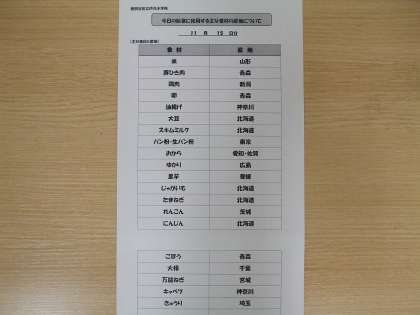 今日の給食に使用する主な食材の産地について
11 月 15 日分
食 材 産 地
米 山形
豚ひき肉 青森
鶏肉 新潟
卵 青森
油揚げ 神奈川
大豆 北海道
スキムミルク 北海道
パン粉・生パン粉 東京
おから 愛知・佐賀
ゆかり 広島
里芋 愛媛
じゃがいも 北海道
たまねぎ 北海道
れんこん 茨城
にんじん 北海道
ごぼう 青森
大根 千葉
万能ねぎ 宮城
キャベツ 神奈川
きゅうり 埼玉